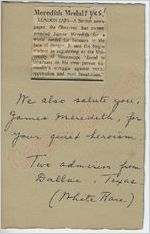 Meredith Medal? Yes.
LONDON (AP)—A British news-
paper, the Observer, has
James Meredith for a
medal for heroism in the
face of danger. It said the Negro
student in registering at the Uni-
versity of Mississippi "faced
in his own person his
people's struggle against
We also salute you,
James Meredith, for
your quiet heroism.
Two admirers from
Dallas, Texas
(White Race)